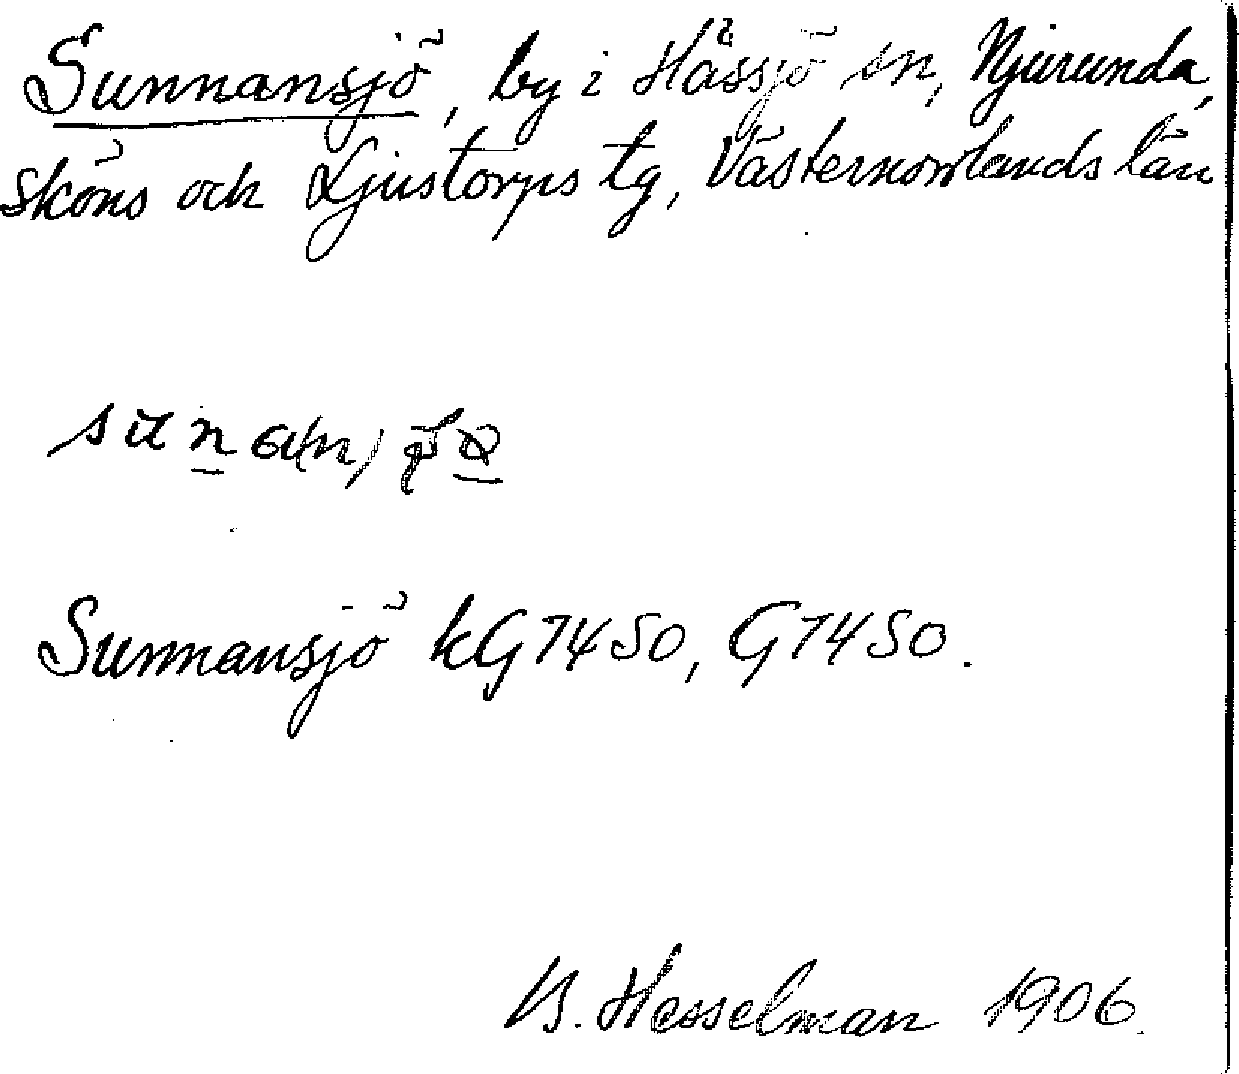 Sunnansjö, by i Hässjö sn, Njurunda,
Sköns och Ljustorps tg, Västernorrlands län
Sunnansjö kG7450, G7450.
B. Hesselman 1906.